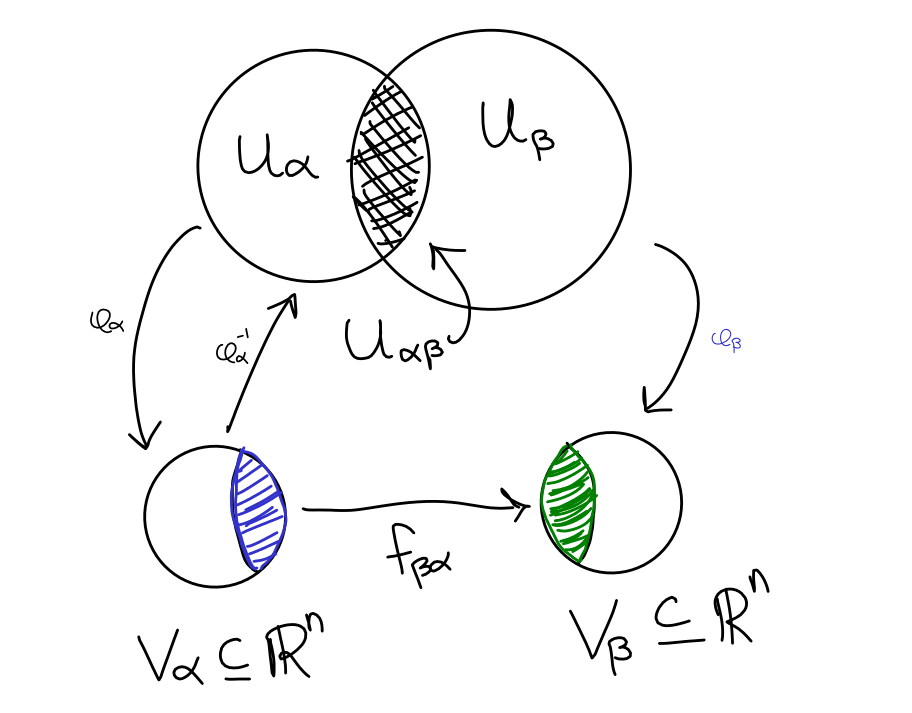 Uα
Uβ
φα
φα⁻¹
Uαβ
φβ
fβα
Vα ⊆ ℝⁿ
Vβ ⊆ ℝⁿ